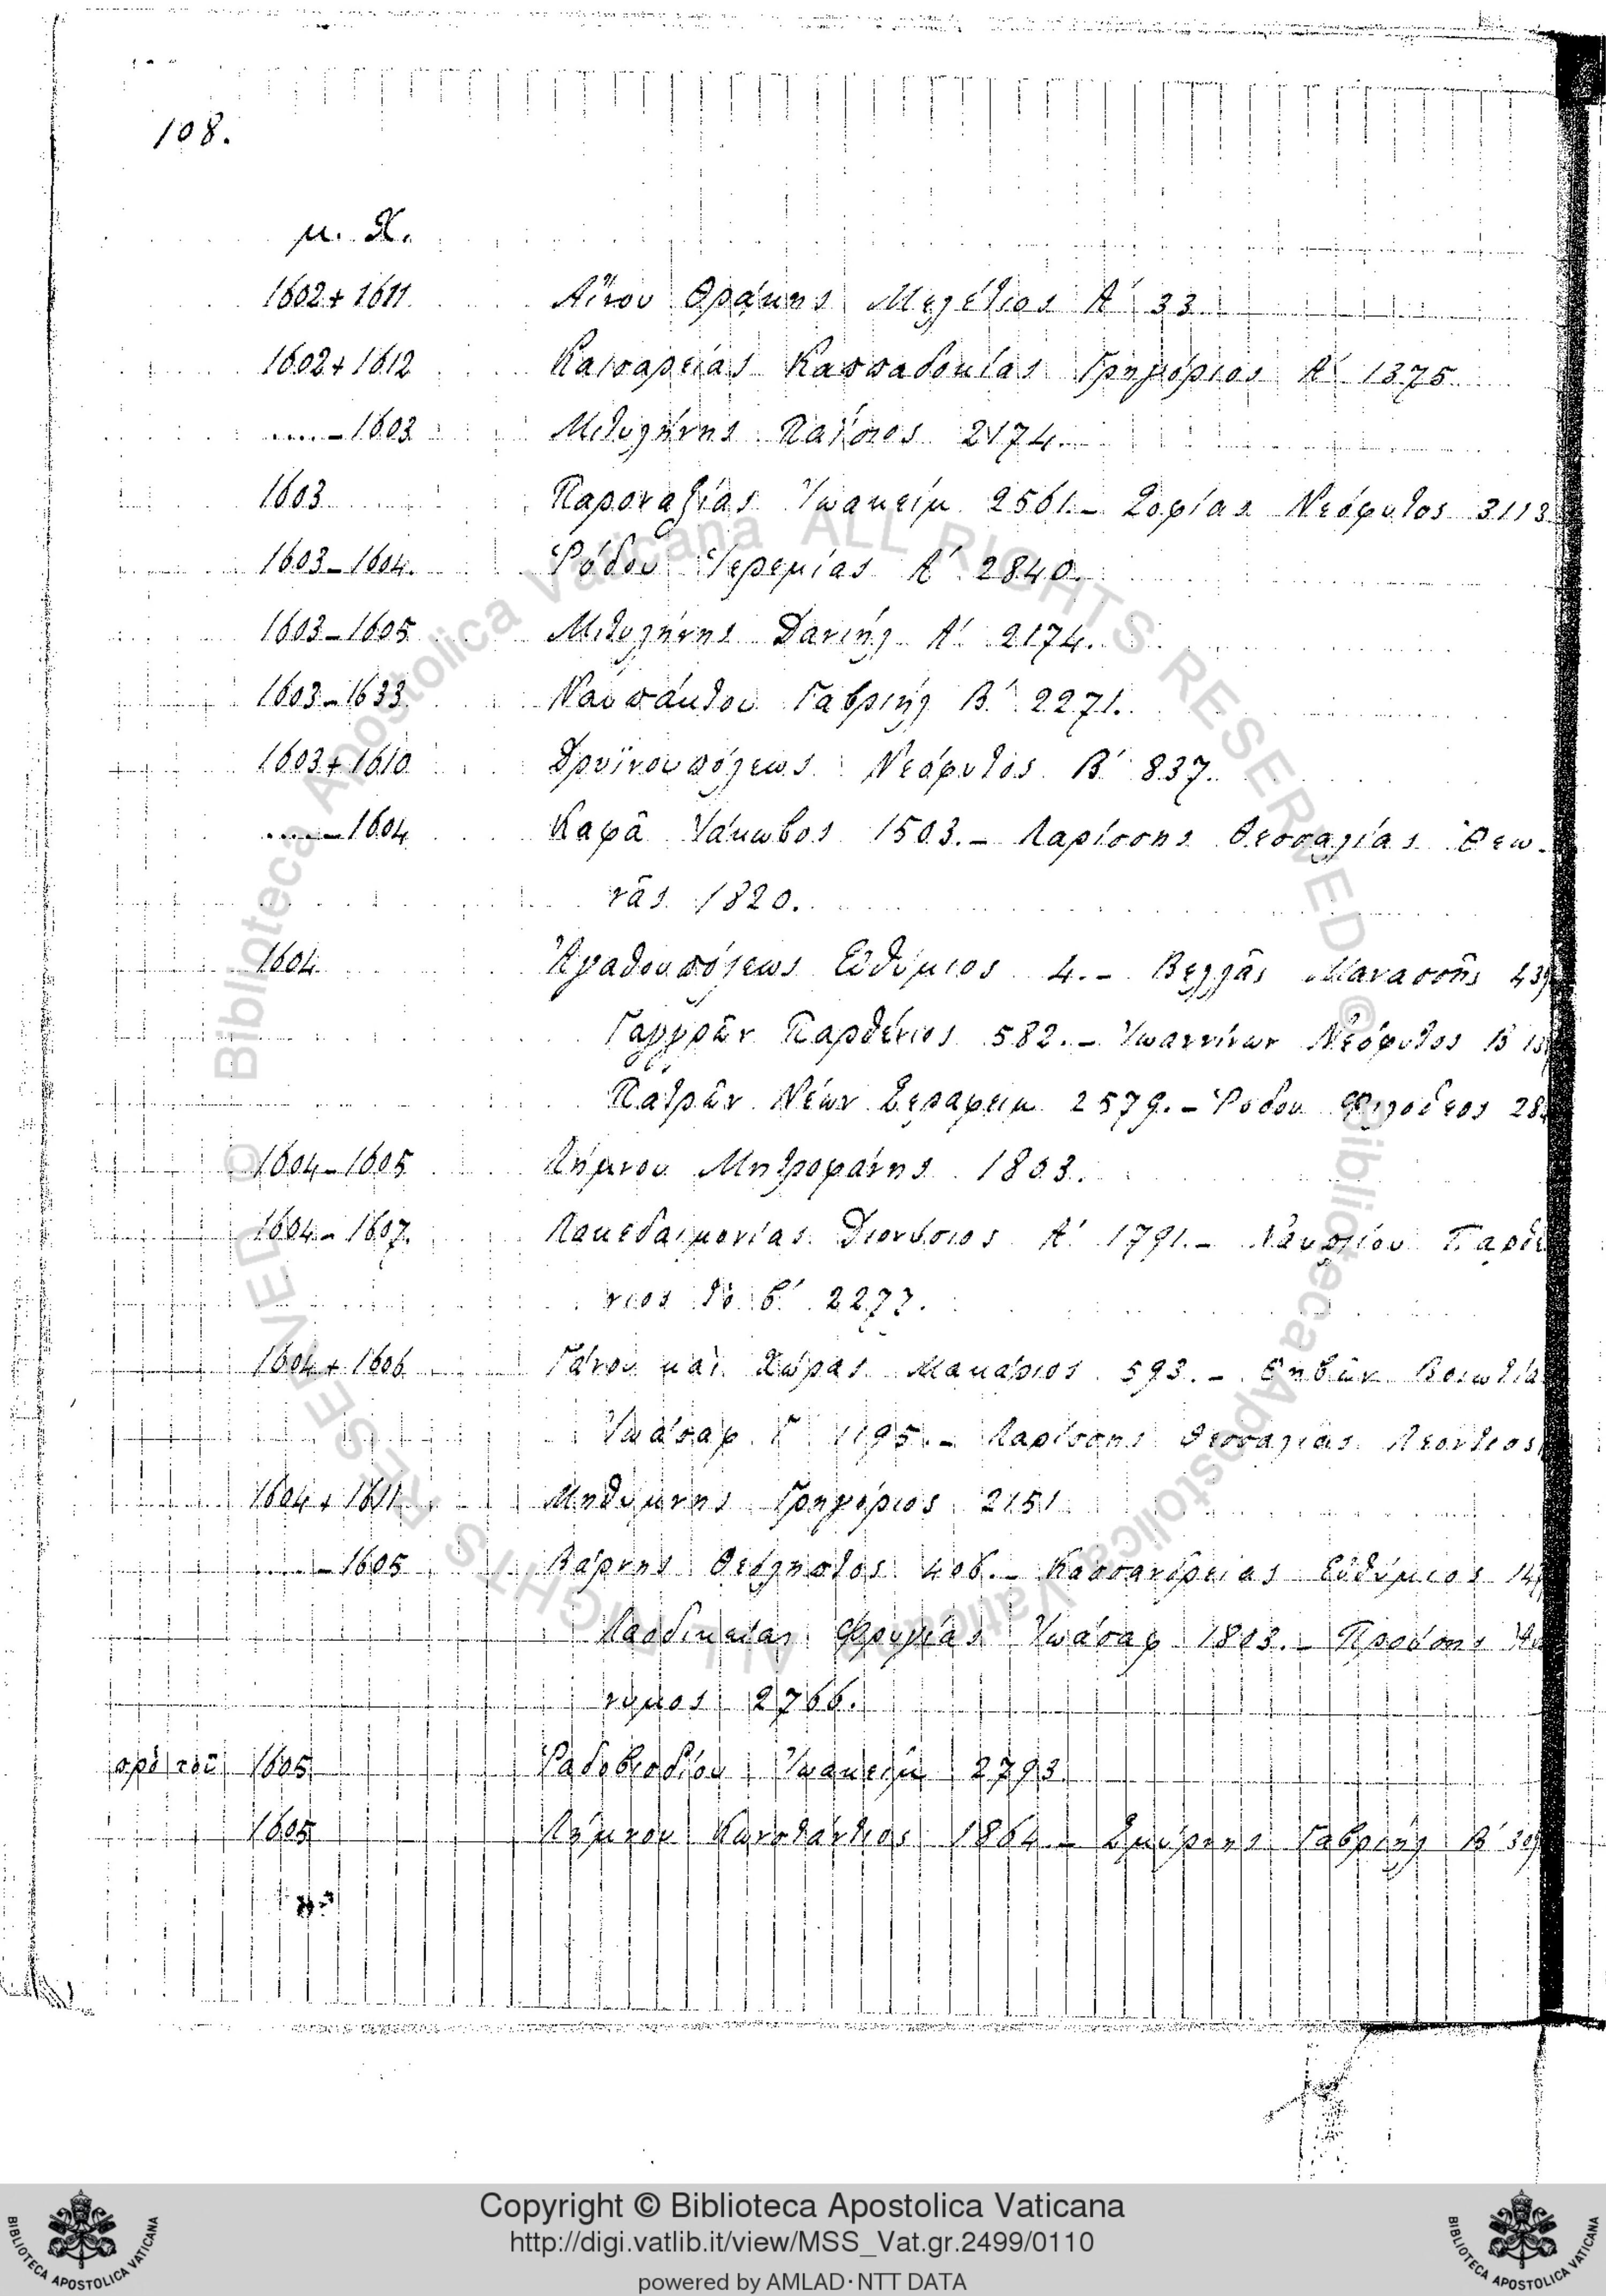 108.
μ. Χ.
1602 + 1611 Αἴνου Θράκης Μελέτιος Α΄ 33.
1602 + 1612 Καισαρείας Καππαδοκίας Γρηγόριος Α΄ 1375.
....– 1603 Μιτυλήνης Παΐσιος 2174.
1603 Παροναξίας Ἰωακείμ 2561. – Σοφίας Νεόφυτος 3113
1603 – 1604. Ῥόδου Ἱερεμίας Α΄ 2840.
1603 – 1605 Μιτυλήνης Δανιήλ Α΄ 2174.
1603 – 1633 Ναυπάκτου Γαβριήλ Β΄ 2271.
1603 + 1610 Δρυϊνουπόλεως Νεόφυτος Β΄ 837.
....– 1604 Καφᾶ Ἰάκωβος 1503. – Λαρίσσης Θεσσαλίας Θεω-
νᾶς 1820.
1604 Ἀγαθουπόλεως Εὐθύμιος 4. – Βελλᾶς Μανασσῆς
Γαγγρῶν Παρθένιος 582. – Ἰωαννίνων Νεόφυτος Β΄
Πατρῶν Νέων Σεραφείμ 2579. – Ῥόδου Φιλόθεος
1604 – 1605 Λήμνου Μητροφάνης 1863.
1604 – 1607. Λακεδαιμονίας Διονύσιος Α΄ 1791. – Ναυπλίου Παρθέ
νιος τὸ β΄ 2277.
1604 + 1606 Γάνου καὶ Χώρας Μακάριος 593. – Θηβῶν Βοιωτία
Ἰωάσαφ Γ΄ 1195. – Λαρίσσης Θεσσαλίας Λεόντιος
1604 + 1611 Μηθύμνης Γρηγόριος 2151
....– 1605 Βάρνης Θεόγνωστος 406. – Κασσανδρείας Εὐθύμιος
Λαοδικείας Φρυγίας Ἰωάσαφ 1803. – Προύσης
νυμος 2766.
πρὸ τοῦ 1605 Ῥαδοβισδίου Ἰωακείμ 2793.
1605 Λήμνου Κωνστάντιος 1864 – Σμύρνης Γαβριήλ Β΄
© Biblioteca Apostolica Vaticana ALL RIGHTS RESERVED
© Biblioteca Apostolica Vaticana ALL RIGHTS RESERVED
BIBLIOTECA APOSTOLICA VATICANA
Copyright © Biblioteca Apostolica Vaticana
http://digi.vatlib.it/view/MSS_Vat.gr.2499/0110
powered by AMLAD·NTT DATA
BIBLIOTECA APOSTOLICA VATICANA